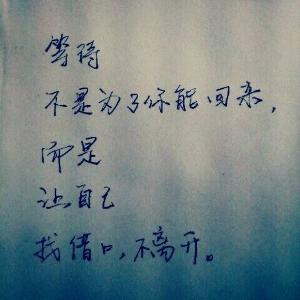 等待
不是为了你能回来，
而是
让自己
找借口，不离开。